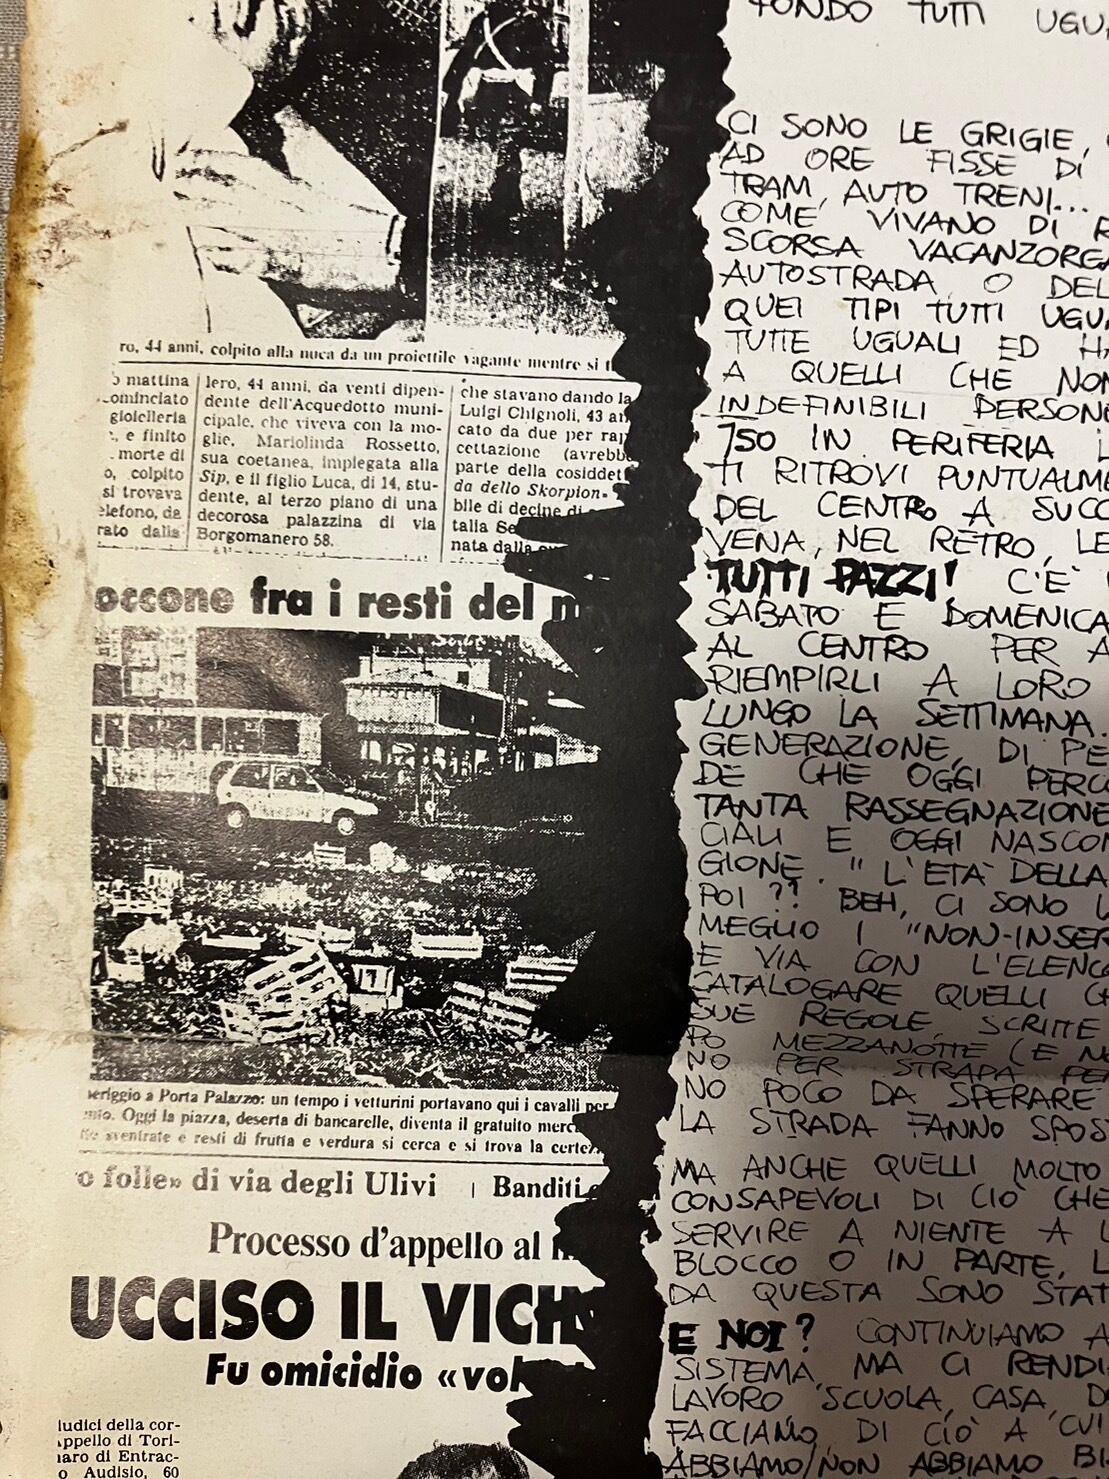 ro, 44 anni, colpito alla nuca da un proiettile vagante mentre si t
o mattina
ominciato
gioielleria
, e finito
morte di
o, colpito
si trovava
elefono, da
rato dalla
lero, 44 anni, da venti dipen-
dente dell'Acquedotto muni-
cipale, che viveva con la mo-
glie, Mariolinda Rossetto,
sua coetanea, impiegata alla
Sip, e il figlio Luca, di 14, stu-
dente, al terzo piano di una
decorosa palazzina di via
Borgomanero 58.
che stavano dando la
Luigi Chignoli, 43 an
cato da due per rap
cettazione (avrebb
parte della cosiddet
da dello Skorpion»
bile di decine di
talla Se
nata dalla
occone fra i resti del m
eriggio a Porta Palazzo: un tempo i vetturini portavano qui i cavalli per
mio. Oggi la piazza, deserta di bancarelle, diventa il gratuito merc
sventrate e resti di frutta e verdura si cerca e si trova la certez
o folle» di via degli Ulivi | Banditi
Processo d'appello al
UCCISO IL VICI
Fu omicidio «vol
iudici della cor-
ppello di Tori-
naro di Entrac-
o Audisio, 60
FONDO TUTTI UGU
CI SONO LE GRIGIE,
AD ORE FISSE DI
TRAM, AUTO TRENI...
COME VIVANO DI R
SCORSA VACANZORGA
AUTOSTRADA O DEL
QUEI TIPI TUTTI UGUA
TUTTE UGUALI ED HA
A QUELLI CHE NON
INDEFINIBILI PERSONE
750 IN PERIFERIA L
TI RITROVI PUNTUALME
DEL CENTRO A SUCC
VENA, NEL RETRO, LE
TUTTI PAZZI! C'È
SABATO E DOMENICA
AL CENTRO PER A
RIEMPIRLI A LORO
LUNGO LA SETTIMANA.
GENERAZIONE, DI PE
DE CHE OGGI PERCO
TANTA RASSEGNAZIONE
CIALI E OGGI NASCON
GIONE. "L'ETÀ DELLA
POI?? BEH, CI SONO L
MEGLIO I "NON-INSER
E VIA CON L'ELENCO
CATALOGARE QUELLI CH
SUE REGOLE, SCRITTE
PO MEZZANOTTE (E NO
NO PER STRADA PER
NO POCO DA SPERARE
LA STRADA FANNO SPOS
MA ANCHE QUELLI MOLTO
CONSAPEVOLI DI CIÒ CHE
SERVIRE A NIENTE A L
BLOCCO O IN PARTE, L
DA QUESTA SONO STAT
E NOI? CONTINUIAMO A
SISTEMA, MA CI RENDI
LAVORO SCUOLA, CASA, D
FACCIAMO DI CIÒ A CUI
ABBIAMO/NON ABBIAMO BI